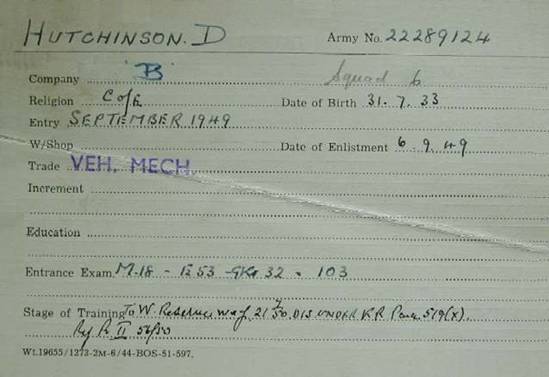 HUTCHINSON. D Army No. 22289124
Company "B" Squad 6
Religion C of E Date of Birth 31. 7. 33
Entry SEPTEMBER 1949
W/Shop Date of Enlistment 6. 9. 49
Trade VEH. MECH.
Increment
Education
Entrance Exam. M.18 - E53 - GK 32 = 103
Stage of Training To W. Reserve w.e.f. 21 50. DIS UNDER K.R Para 519(X).
II 56/50
Wt.19655/1273-2M-6/44-BOS-51-597.